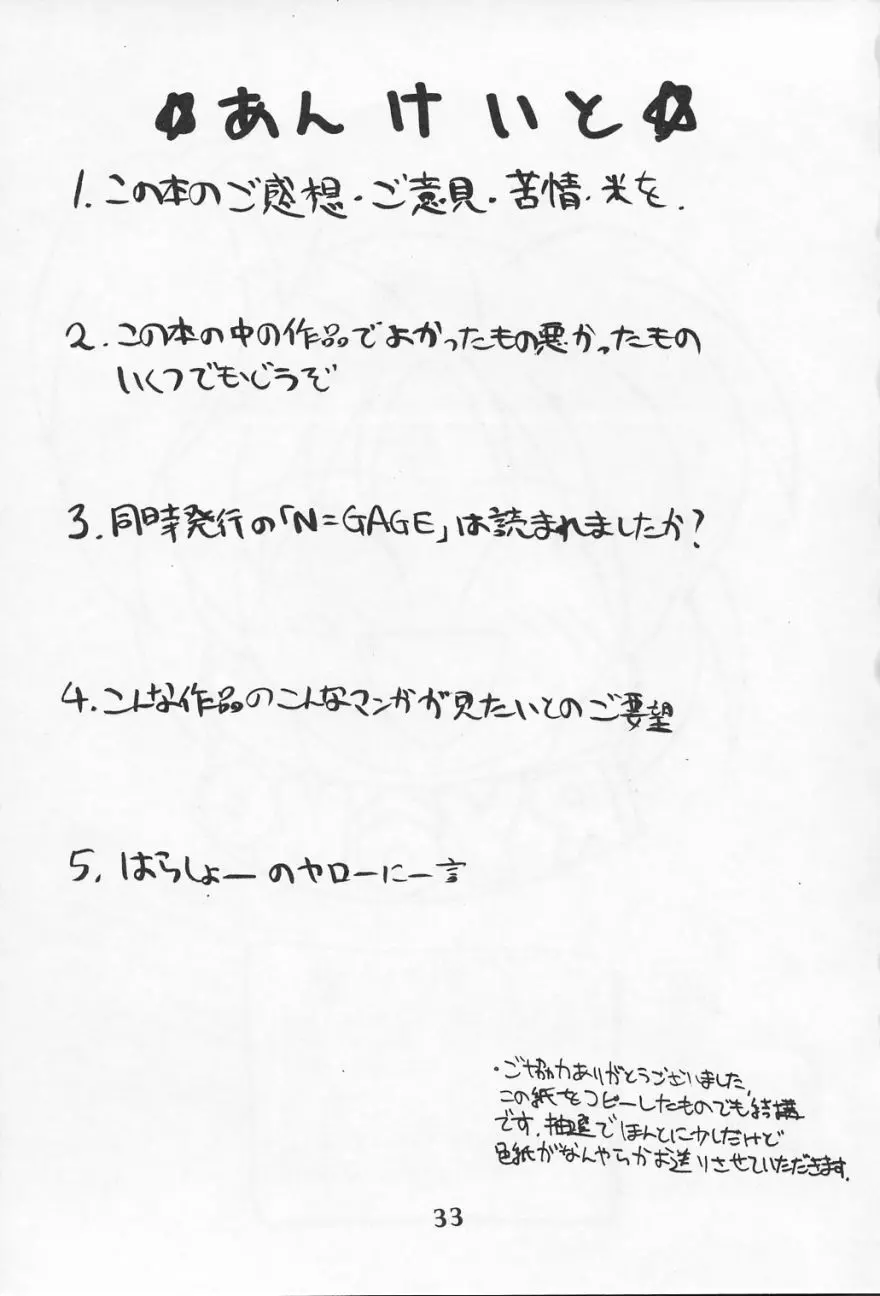 ☆あんけいと☆
1.この本のご感想・ご意見・苦情・米を.
2.この本の中の作品でよかったもの悪かったもの
いくつでもどうぞ
3.同時発行の「N=GAGE」は読まれましたか?
4.こんな作品のこんなマンガが見たいとのご要望
5.はらしょーのヤローに一言
・ご協力ありがとうございました,
この紙をコピーしたものでも結構
です.抽選でほんとに少しだけど
色紙がなんやらかお送りさせていただきます.
33